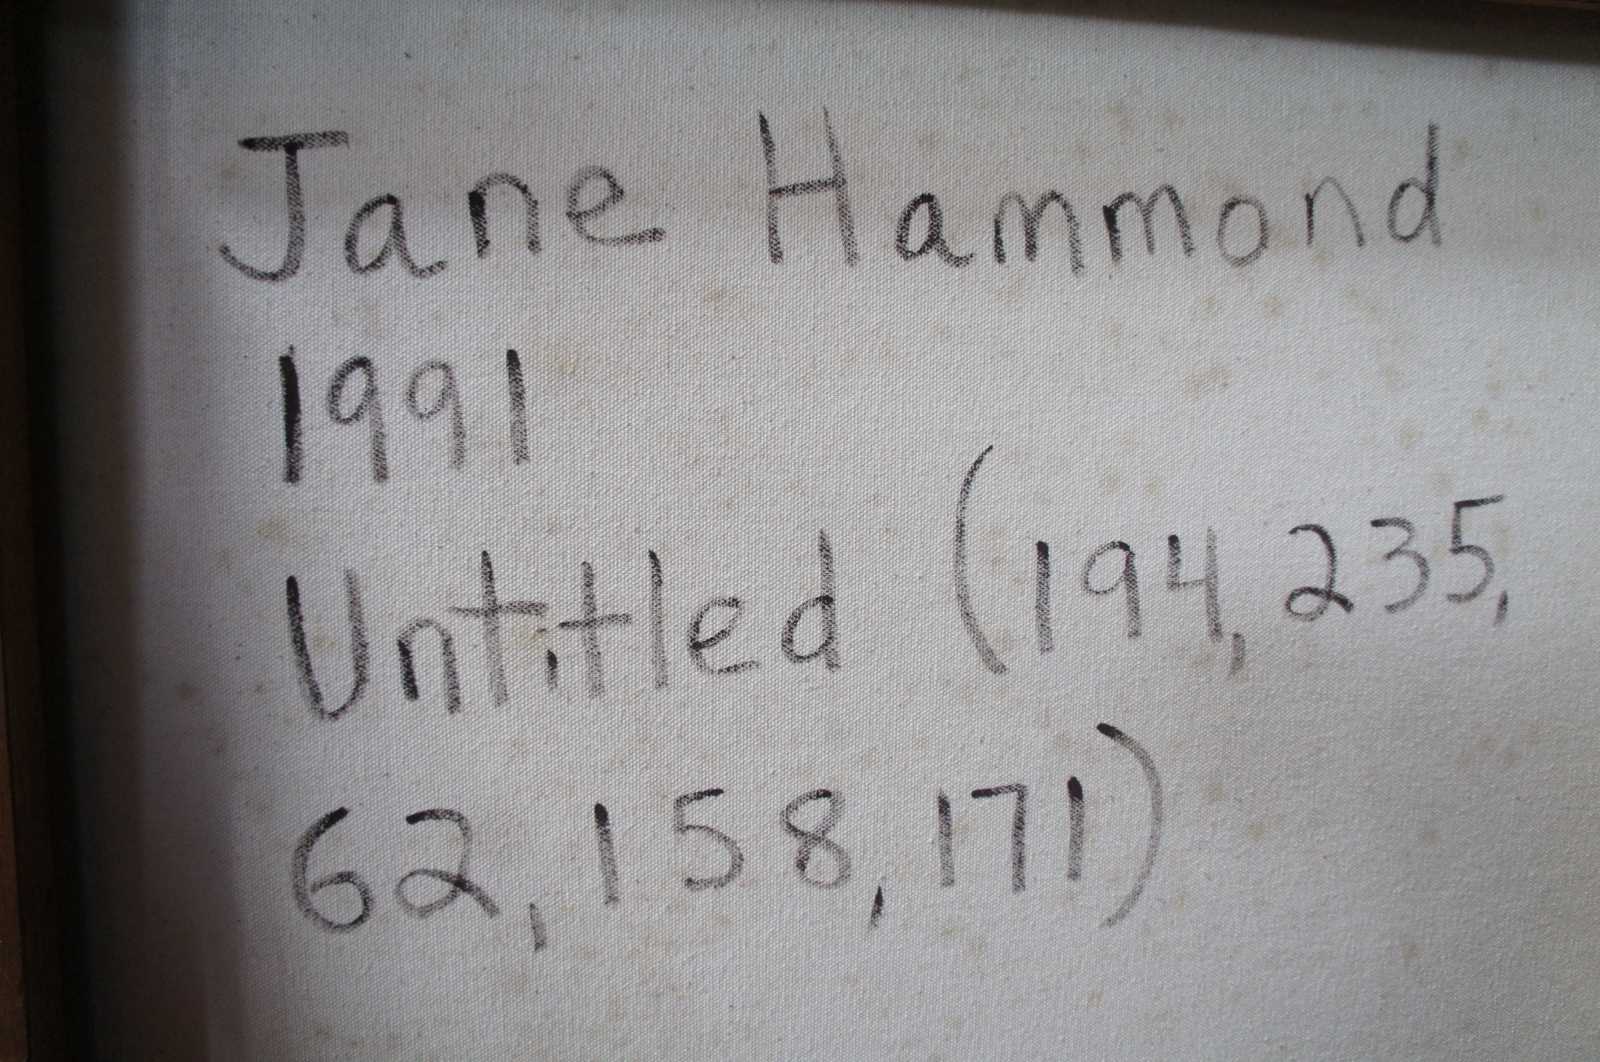 Jane Hammond
1991
Untitled (194, 235,
62, 158, 171)